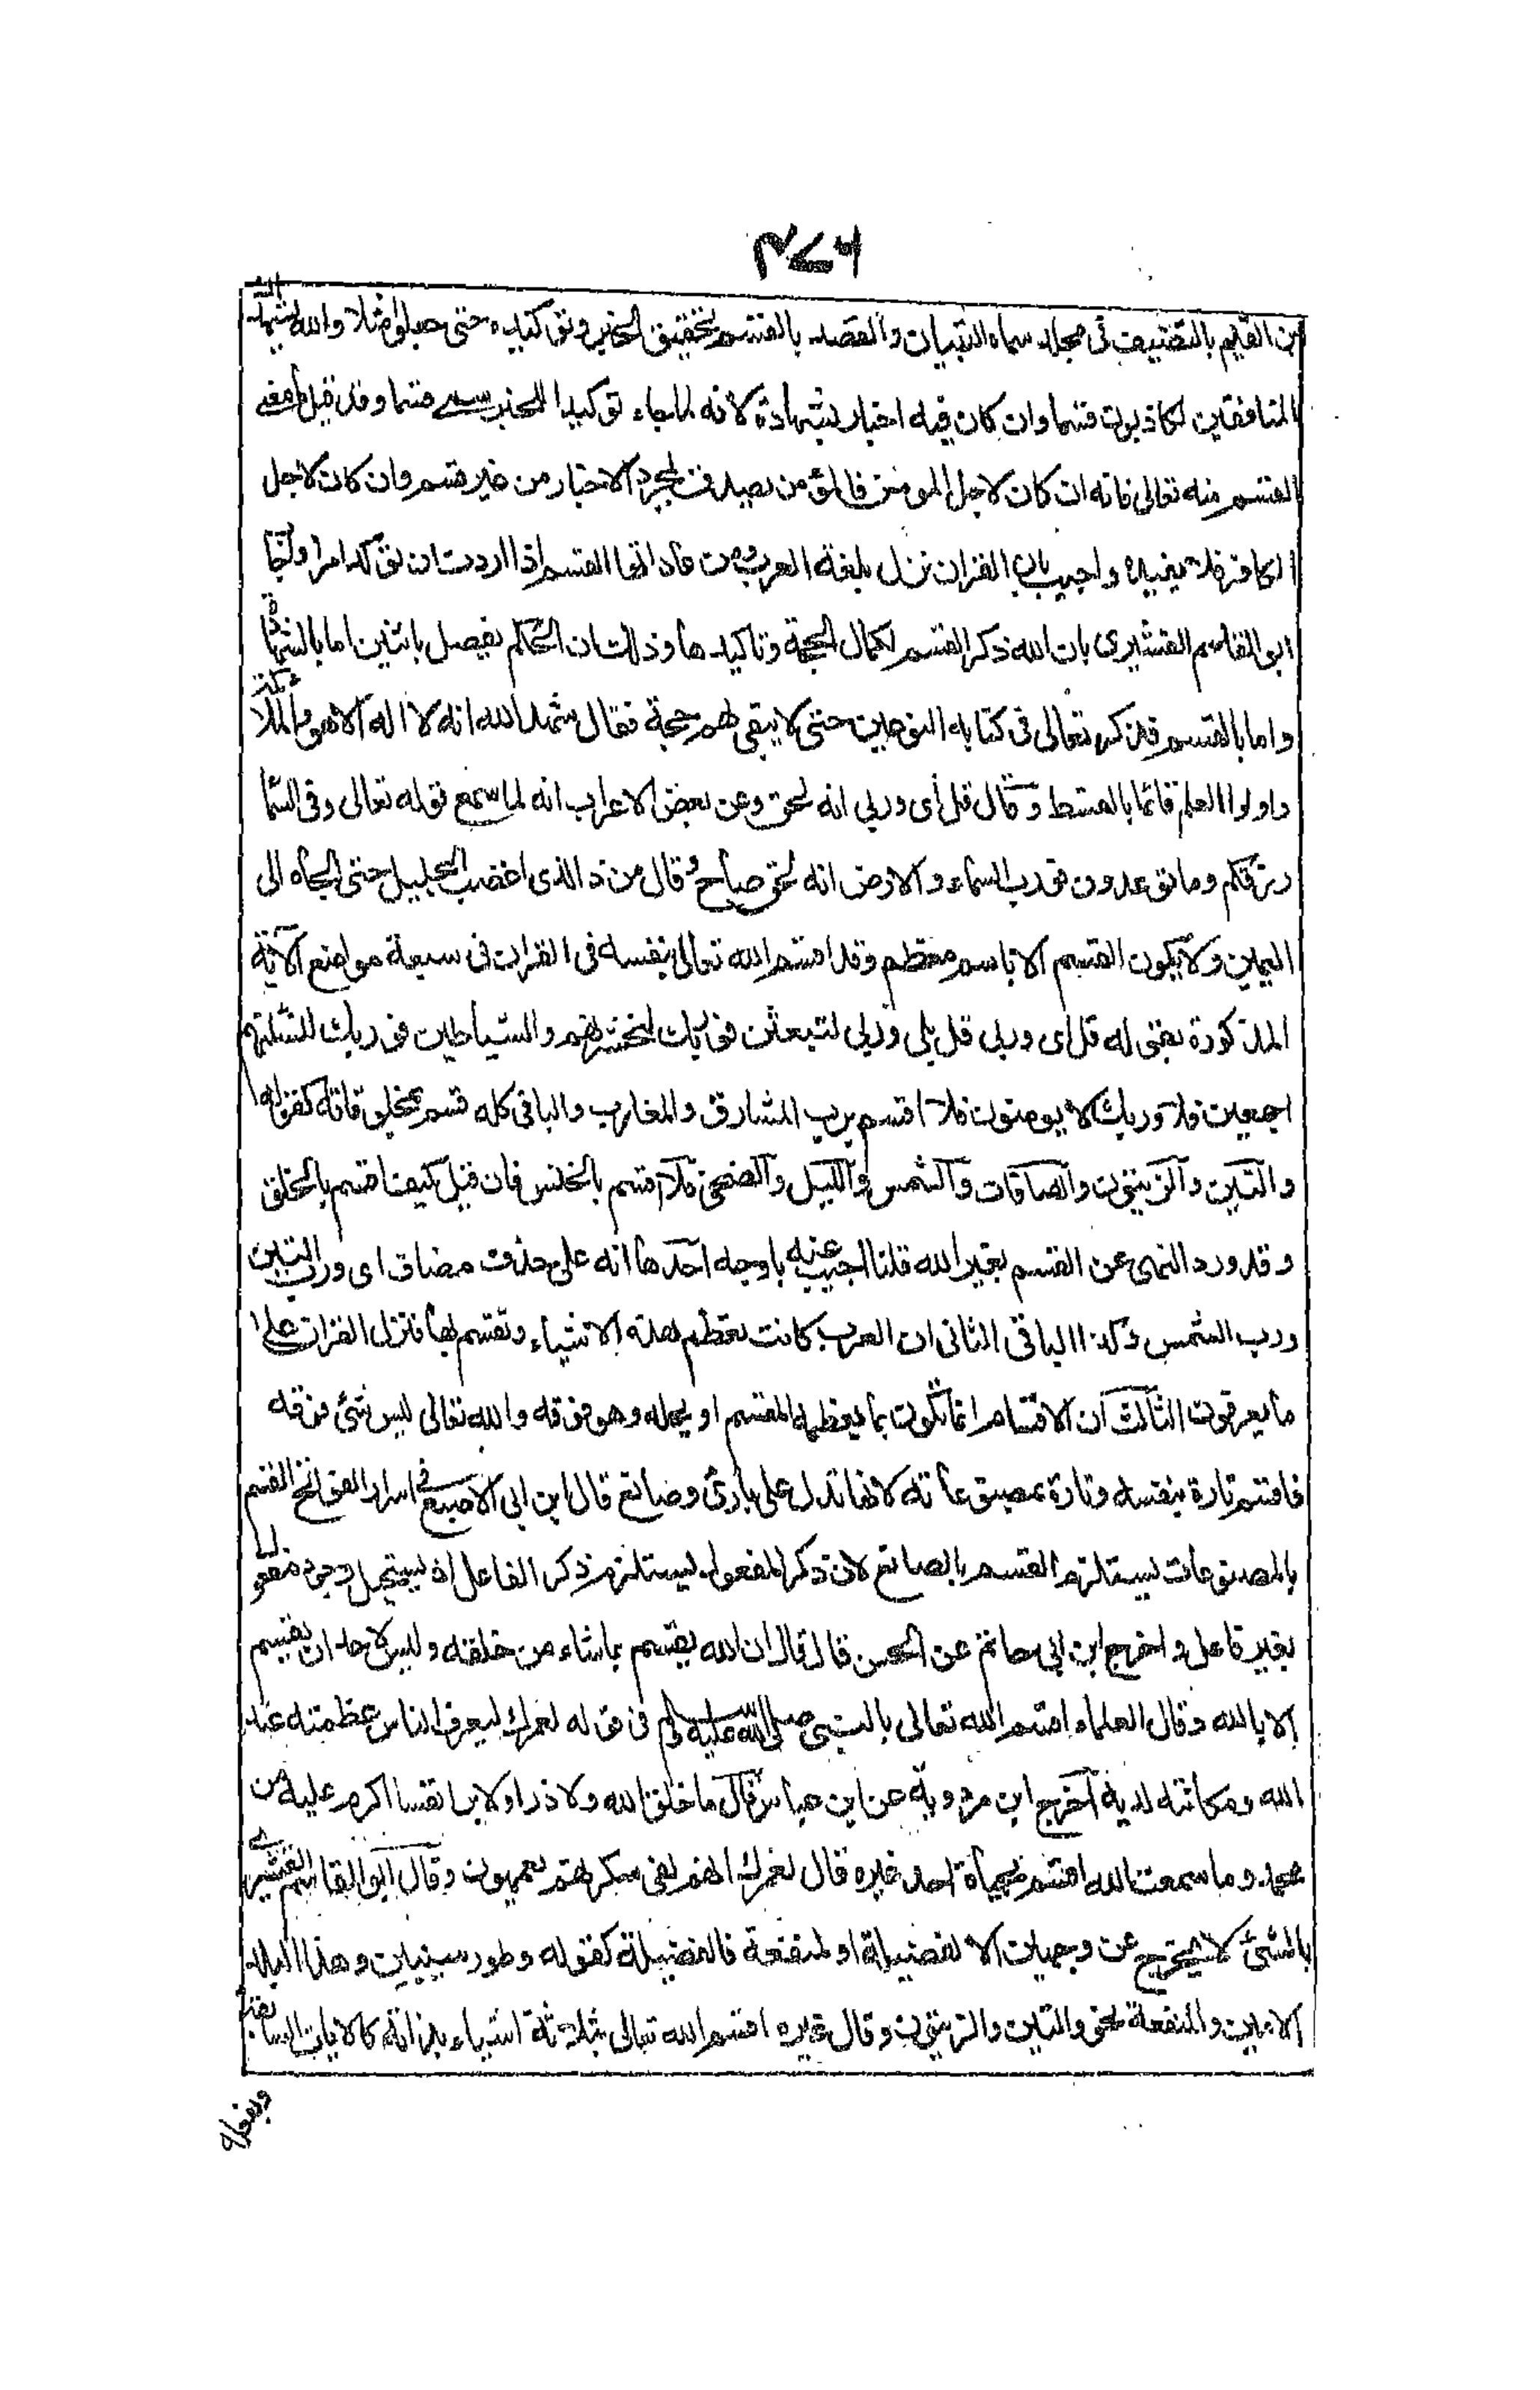 ٤٧٦
ابن القيم بالتصنيف فى مجلد سماه التبيان والقصد بالقسم تحقيق الخبر وتوكيده حتى جعلوا مثلا والله يشهد ان
المنافقين لكاذبون قسما وان كان فيه اخبار بشهادة لانه لما جاء توكيدا للخبر سمى قسما وقد قيل ما معنى
القسم منه تعالى فانه ان كان لاجل المومن فالمؤمن يصدق بمجرد الاخبار من غير قسم وان كان لاجل
الكافر فلا يفيده واجيب بان القران نزل بلغة العرب ومن عاداتها القسم اذا اردت ان توكد امرا واجاب
ابو القاسم القشيرى بان الله ذكر القسم لكمال الحجة وتاكيدها وذلك ان الحاكم يفصل باثنين اما بالشهادة
واما بالقسم فذكر تعالى فى كتابه النوعين حتى لا يبقى لهم حجة فقال شهد الله انه لا اله الا هو والملائكة
واولوا العلم قائما بالقسط وقال قل اى وربى انه لحق وعن بعض الاعراب انه لما سمع قوله تعالى وفى السما
رزقكم وما توعدون فورب السماء والارض انه لحق صاح وقال من ذا الذى اغضب الجليل حتى الجاه الى
اليمين ولا يكون القسم الا باسم معظم وقد اقسم الله تعالى بنفسه فى القران فى سبعة مواضع الآية
المذكورة بقوله قل اى وربى قل بلى وربى لتبعثن فوربك لنحشرنهم والشياطين فوربك لنسئلنهم
اجمعين فلا وربك لا يومنون فلا اقسم برب المشارق والمغارب والباقى كله قسم بمخلوقاته كقوله
والتين والزيتون والصافات والشمس والليل والضحى فلا اقسم بالخنس فان قيل كيف اقسم بالخلق
وقد ورد النهى عن القسم بغير الله قلنا اجيب عنه باوجه احدها انه على حذف مضاف اى ورب التين
ورب الشمس وكذا الباقى الثانى ان العرب كانت تعظم هذه الاشياء وتقسم بها فنزل القران على
ما يعرفون الثالث ان الاقسام انما تكون بما يعظمه المقسم او يجله وهو فوقه والله تعالى ليس شئ فوقه
فاقسم تارة بنفسه وتارة بمصنوعاته لانها تدل على بارئ وصانع قال ابن ابى الاصبع فى اسرار الفواتح القسم
بالمصنوعات يستلزم القسم بالصانع لان ذكر المفعول يستلزم ذكر الفاعل اذ يستحيل وجود مفعول
بغير فاعل واخرج ابن ابى حاتم عن الحسن قال ان الله يقسم بما شاء من خلقه وليس لاحد ان يقسم
الا بالله وقال العلماء اقسم الله تعالى بالنبى صلى الله عليه وسلم فى قوله لعمرك ليعرف الناس عظمته عند
الله ومكانته لديه اخرج ابن مردويه عن ابن عباس قال ما خلق الله ولا ذرا ولا برا نفسا اكرم عليه من
محمد وما سمعت الله اقسم بحياة احد غيره قال لعمرك انهم لفى سكرتهم يعمهون وقال ابو القاسم القشيرى
بالشئ لا يخرج عن وجهين الا لفضيلة او لمنفعة فالفضيلة كقوله وطور سينين وهذا البلد
الامين والمنفعة نحو والتين والزيتون وقال غيره اقسم الله تعالى بثلاثة اشياء بذاته كالايات السابقة
وبفعله